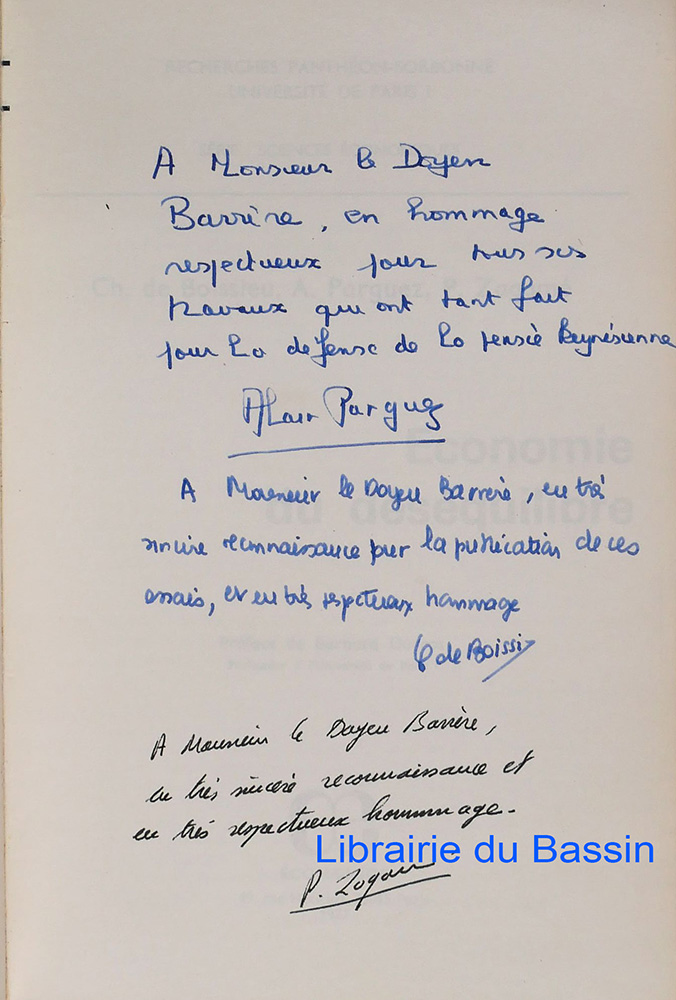 A Monsieur le Doyen
Barrère, en hommage
respectueux pour tous ses
travaux qui ont tant fait
pour la défense de la pensée Keynésienne
Alain Parguez
A Monsieur le Doyen Barrère, en très
sincère reconnaissance pour la publication de ces
essais, et en très respectueux hommage
C de Boissi
A Monsieur le Doyen Barrère,
en très sincère reconnaissance et
en très respectueux hommage.
Librairie du Bassin
P. Zagam